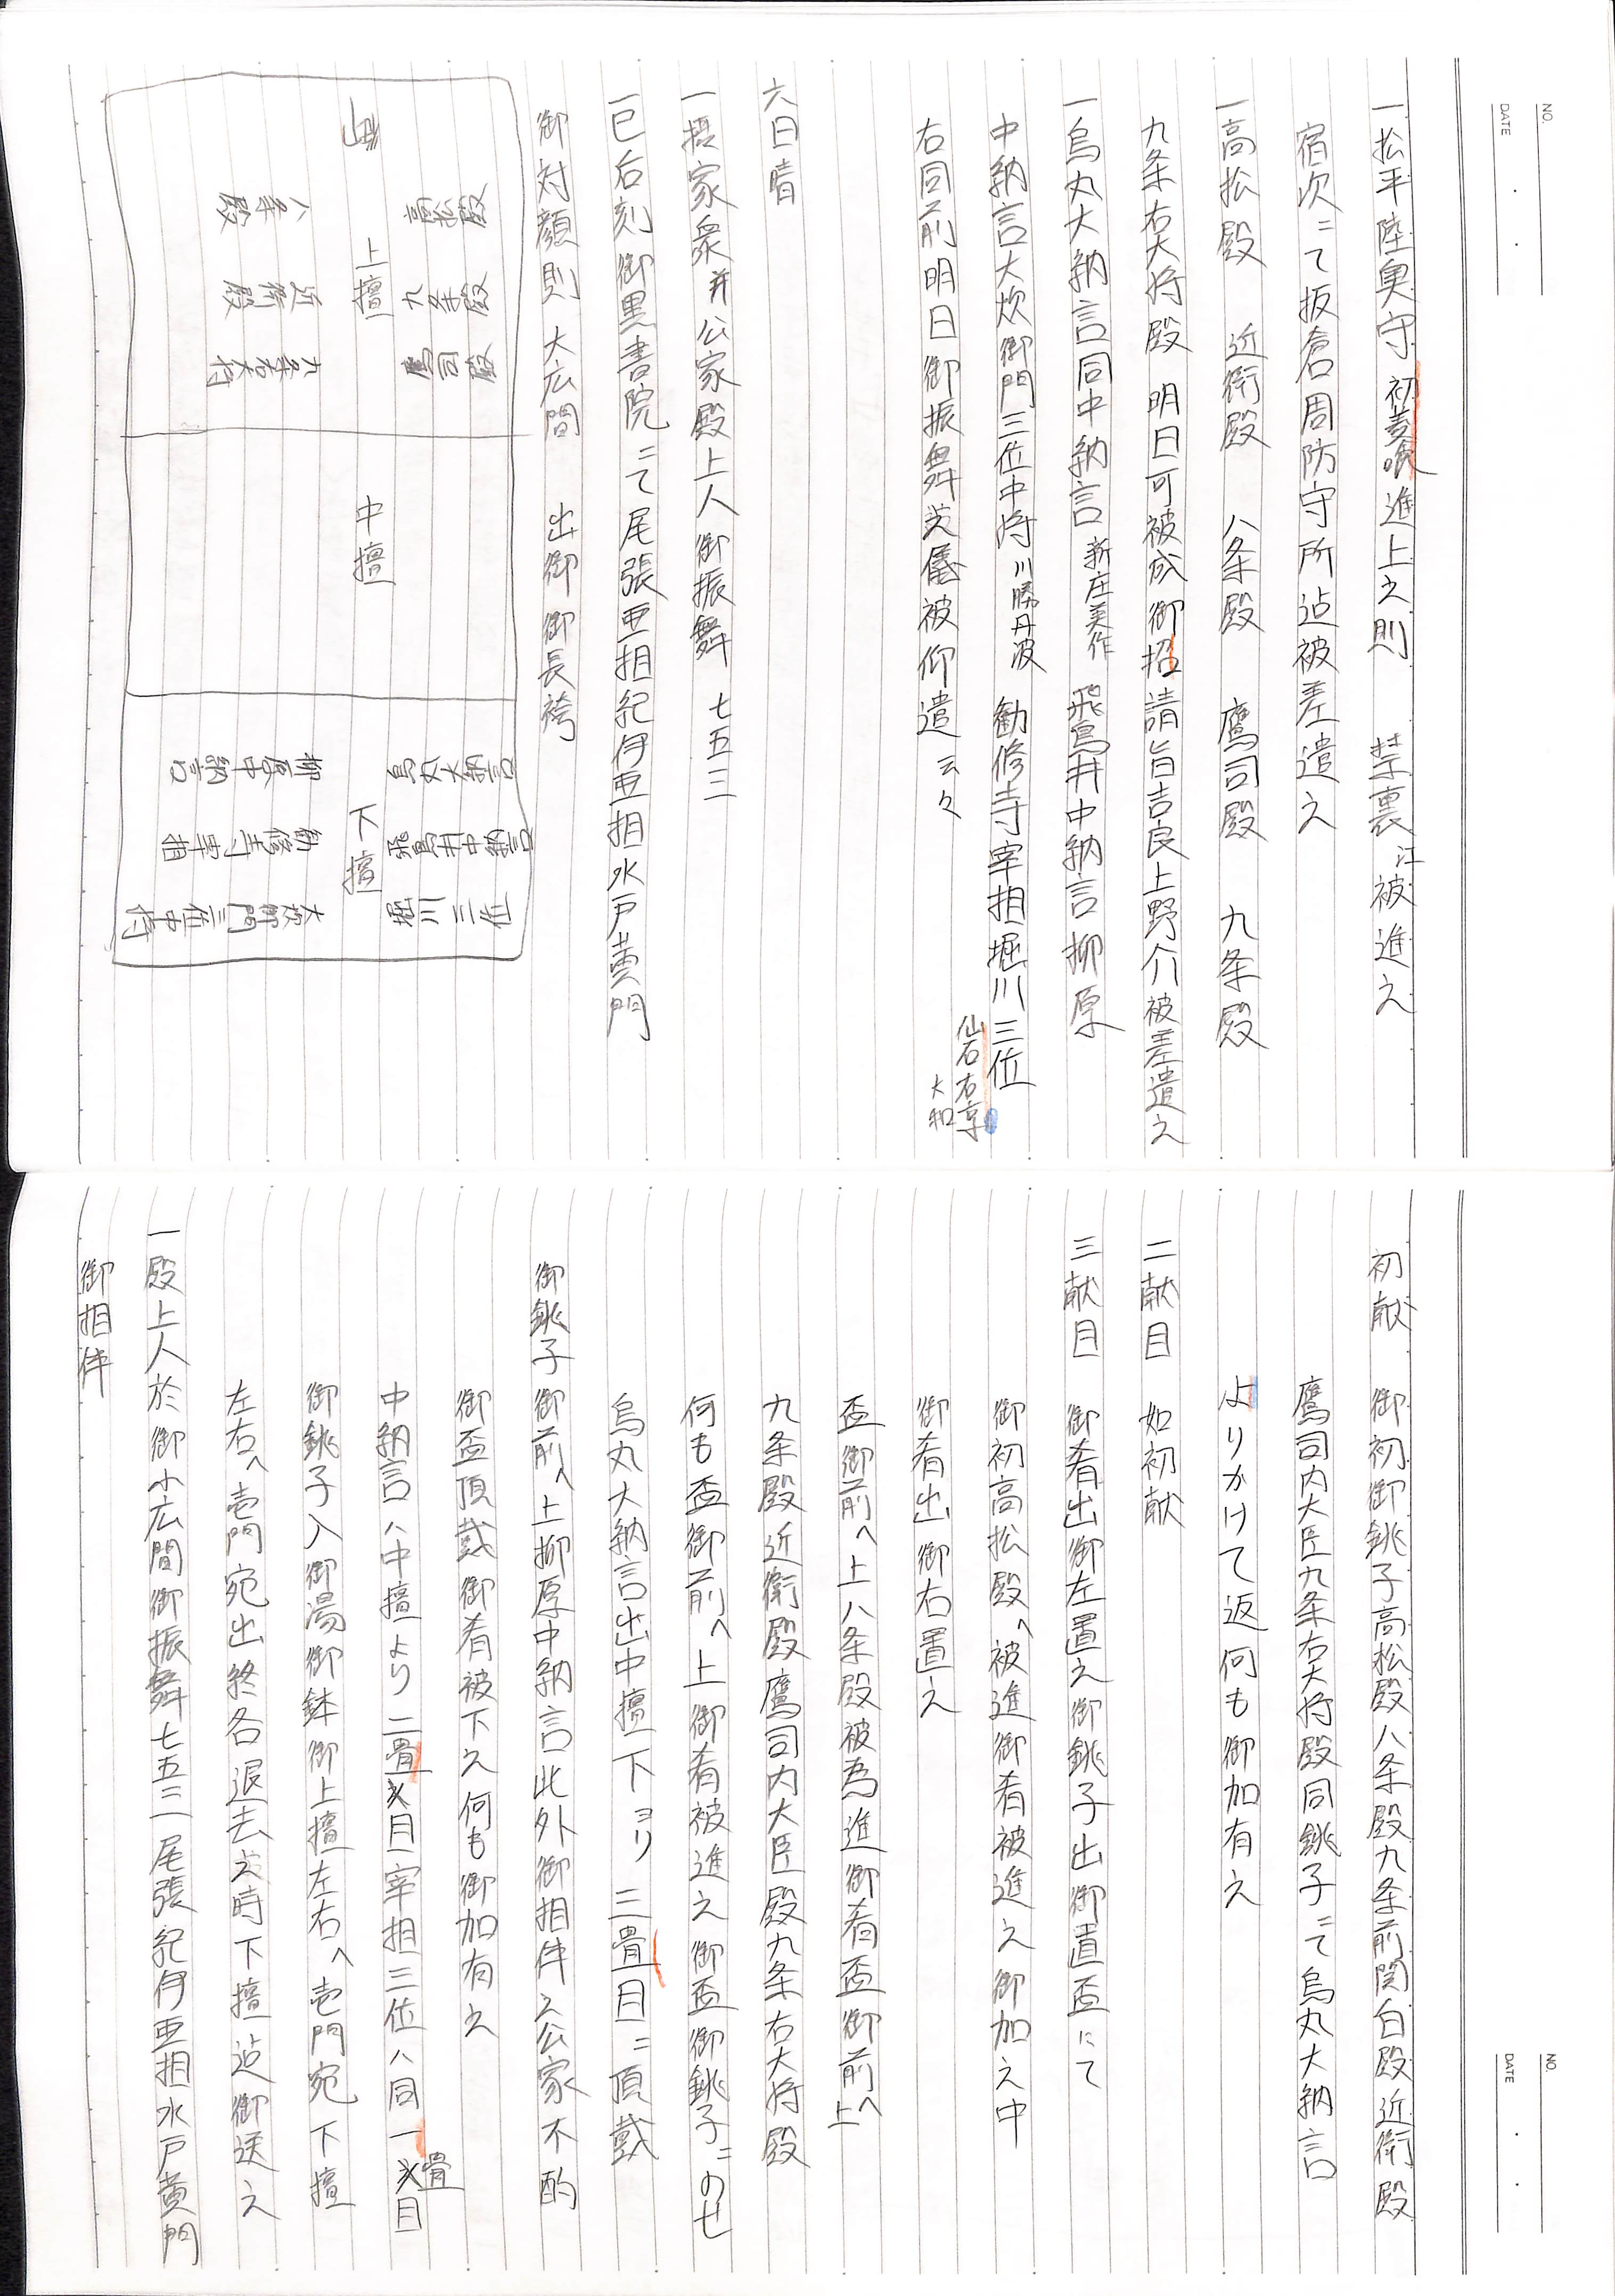 NO.
DATE
一松平陸奥守 初菱喰進上之則 禁裏江被進之
宿次ニて板倉周防守所迠被差遣之
一高松殿 近衛殿 八条殿 鷹司殿 九条殿
九条右大将殿 明日可被成御招請旨吉良上野介被差遣之
一烏丸大納言同中納言 新庄美作 飛鳥井中納言柳原
中納言大炊御門三位中将 川勝丹波 勧修寺宰相堀川三位
仙石右京
大和
右同前明日御振舞之儀被仰遣云々
六日晴
一摂家衆并公家殿上人御振舞 七五三
一巳后刻御黒書院ニて尾張亜相紀伊亜相水戸黄門
御対顔則 大広間 出御 御長袴
高松殿 九条殿 鷹司殿
上壇
八条殿 近衛殿 九条右大将
中壇
烏丸大納言 飛鳥井中納言 堀川三位
下壇
柳原中納言 勧修寺宰相 大炊御門三位中将
NO.
DATE
初献 御初御銚子高松殿八条殿九条前関白殿近衛殿
鷹司内大臣九条右大将殿同銚子ニて烏丸大納言
よりかけて返何も御加有之
二献目 如初献
三献目 御肴出御左置之御銚子出御直盃にて
御初高松殿へ被進御肴被進之御加之中
御肴出御右置之
盃御前へ上八条殿被為進御肴盃御前へ上
九条殿近衛殿鷹司内大臣殿九条右大将殿
何も盃御前へ上御肴被進之御盃御銚子ニのせ
烏丸大納言出中壇下ヨリ三畳目ニ頂戴
御銚子御前へ上柳原中納言此外御相伴之公家不酌
御盃頂戴御肴被下之何も御加有之
中納言ハ中壇より二畳目宰相三位ハ同一畳目
御銚子入御湯御鉢御上壇左右へ壱門宛下壇
左右へ壱門宛出終各退去之時下壇迠御送之
一殿上人於御小広間御振舞七五三尾張紀伊亜相水戸黄門
御相伴